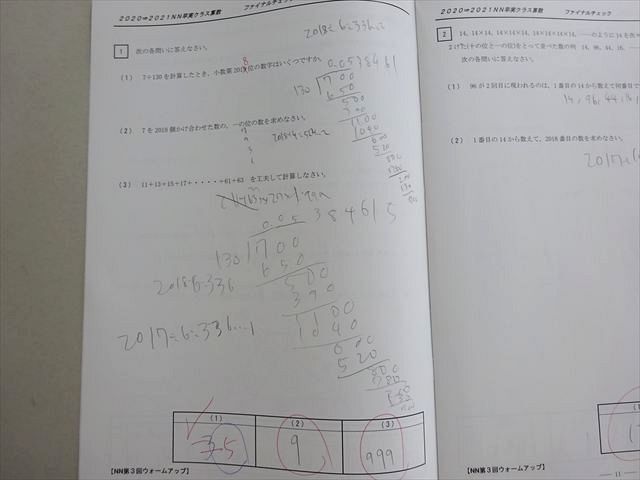 2020-2021NN卒実クラス算数 ファイナルチェック
2018÷6=336…2
1 次の各問いに答えなさい。
8
(1) 7÷130を計算したとき、小数第2018位の数字はいくつですか。
0.0538461
130 700
650
500
390
1100
1040
600
520
(2) 7を2018個かけ合わせた数の、一の位の数を求めなさい。
7
9
3
1
(3) 11+13+15+17+・・・・・+61+63 を工夫して計算しなさい。
0.05384615
130 700
650
500
390
1100
1040
600
520
800
780
2018÷6=336
2017÷6=336…1
(1) (2) (3)
5 9 999
【NN第3回ウォームアップ】
2020-2021NN卒実クラス算数 ファイナルチェック
2 14, 14×14, 14×14×14, 14×14×14×14, ……のように14を
2けた(十の位と一の位)をとって並べた数の列 14, 96, 44, 16, ……
次の各問いに答えなさい。
(1) 96が2回目に現われるのは、1番目の14から数えて何番目で
14, 96, 44, 16
(2) 1番目の14から数えて、2018番目の数を求めなさい。
2017
【NN第3回ウォームアップ】
— 11 —